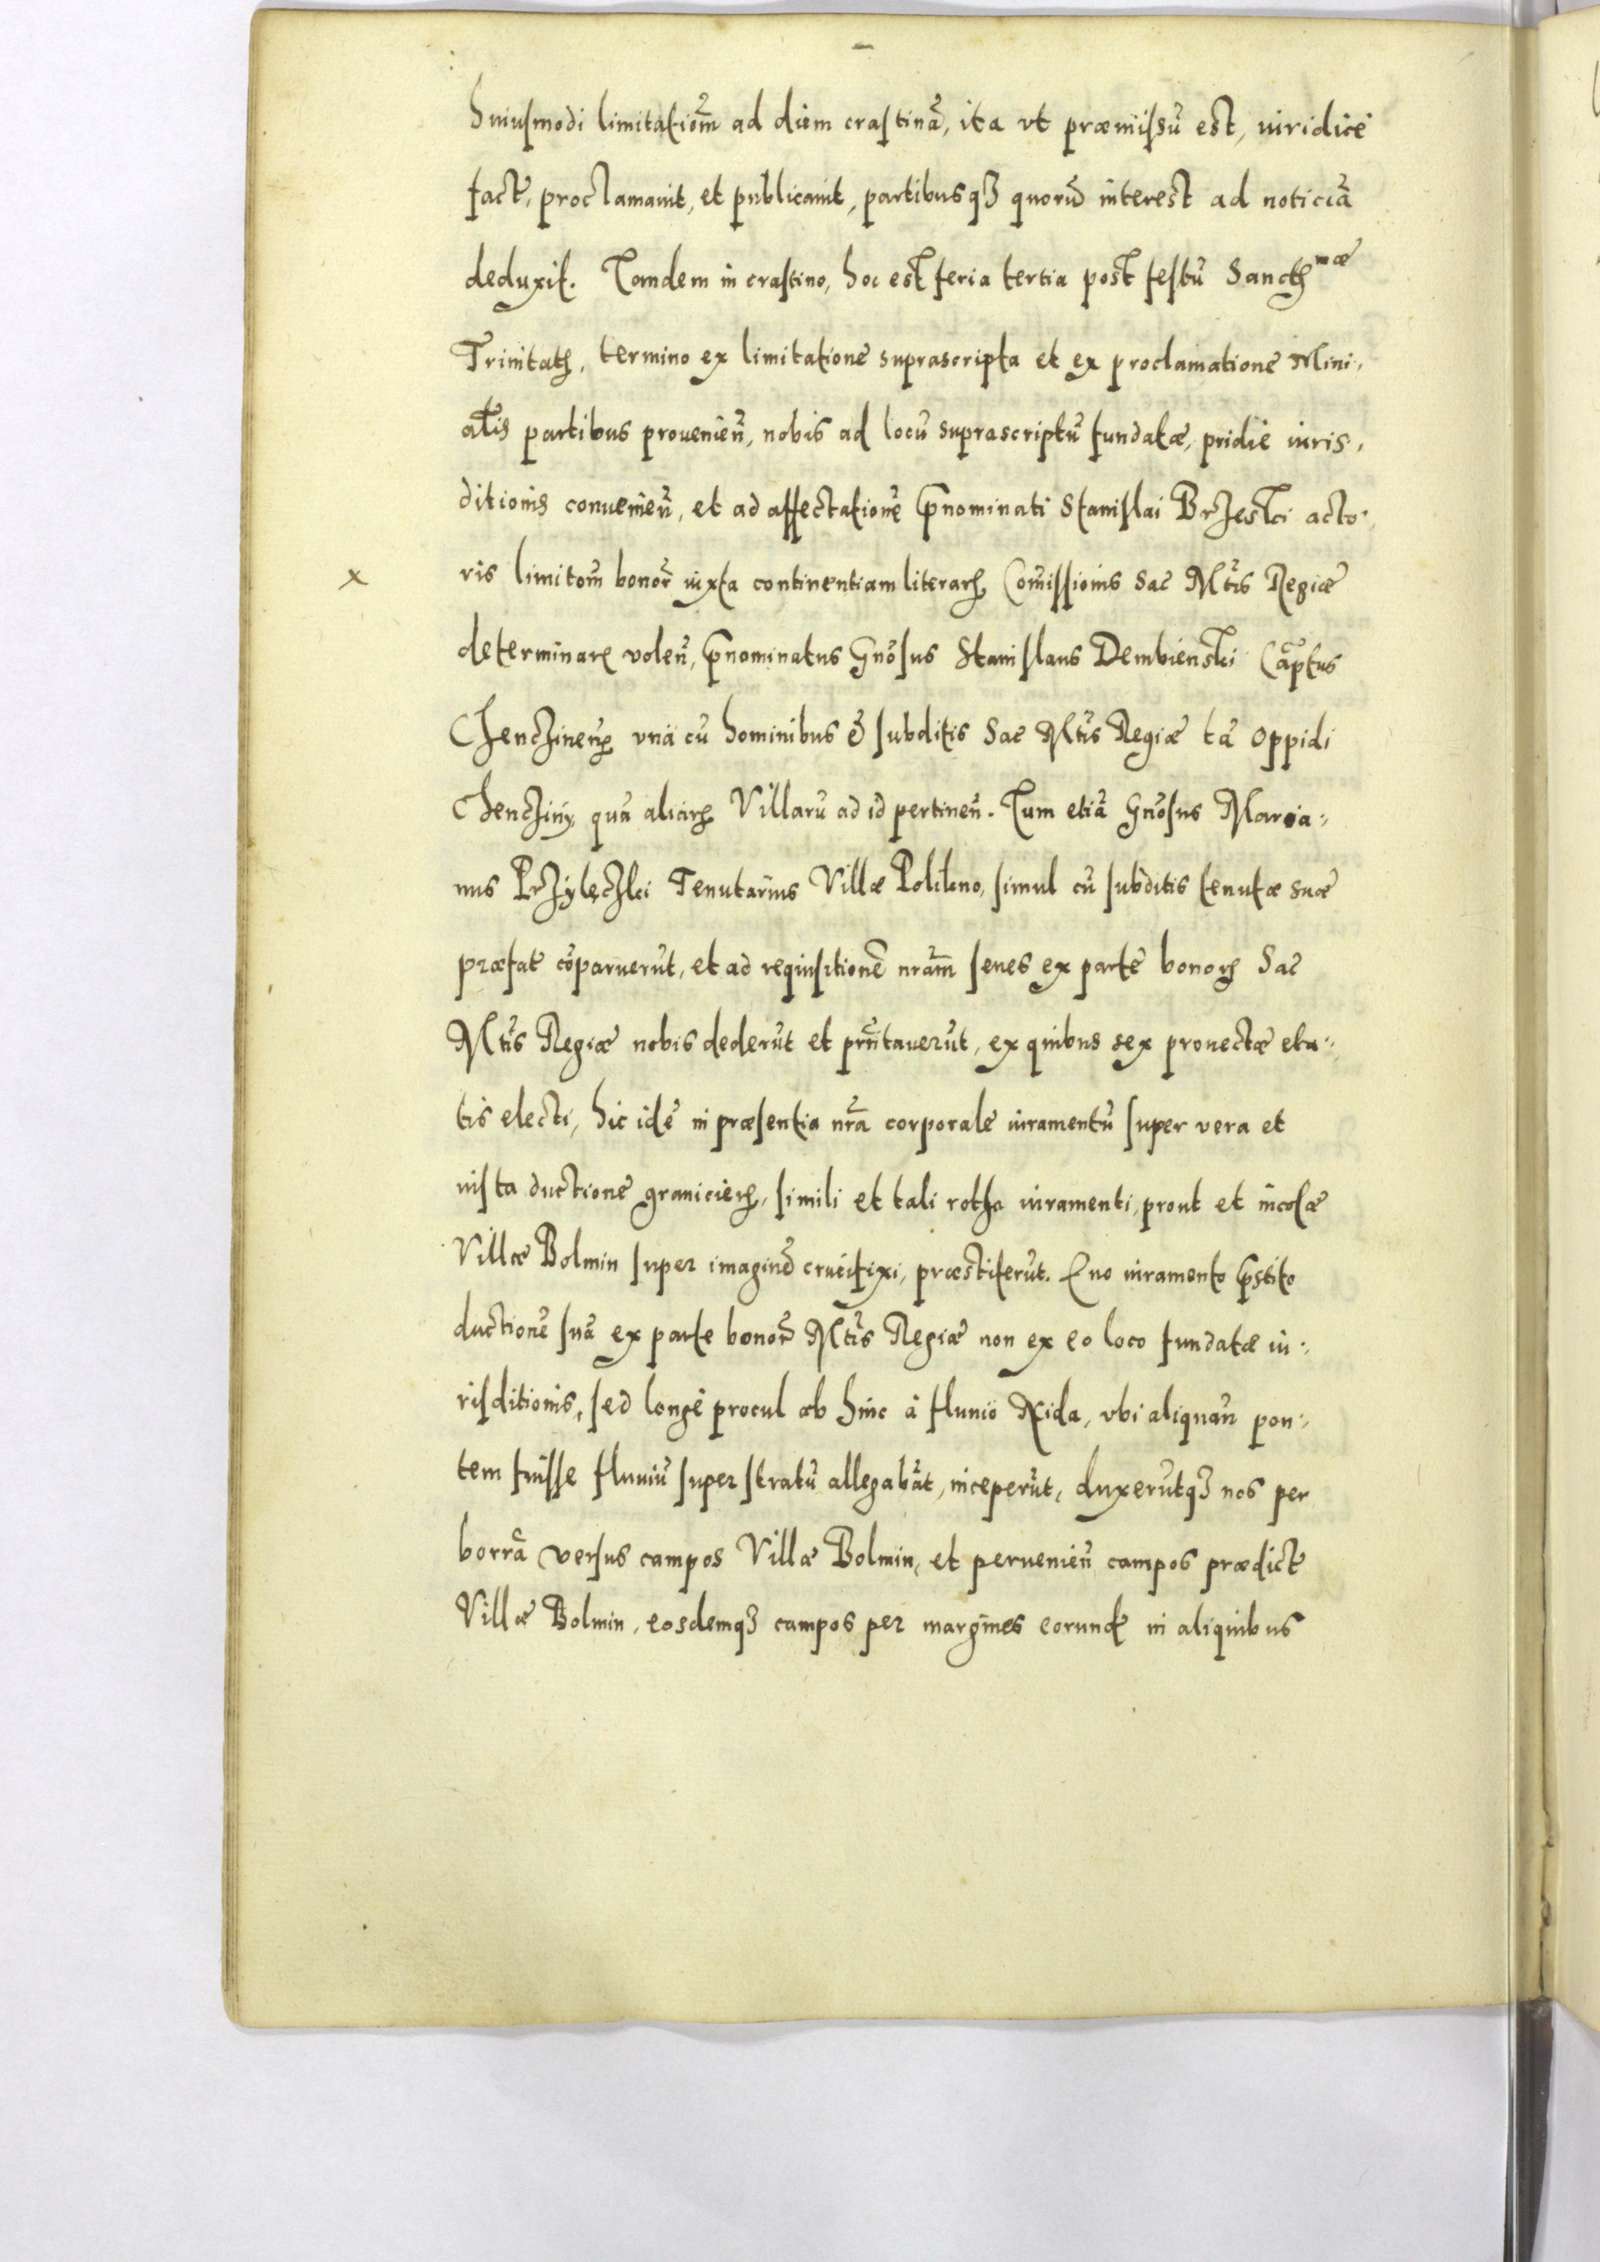 huiusmodi limitatioēm ad diem crastinā, ita vt præmissū est, iuridicè
fact͡e, proclamauit, et publicauit, partibusqȝ quorū interest ad noticiā
deduxit. Tandem in crastino, hoc est feria tertia post festū Sanctis mæ
Trinitatis, termino ex limitatione suprascripta et ex proclamatione Mini-
alis partibus proueniēn, nobis ad locū suprascriptū fundatæ, pridie iuris-
ditionis conuenieñ, et ad affectationē p̄nominati Stanislai Brzesky acto-
x ris limitoēm bonor̃ iuxta continentiam literarū Comissionis Sac Mtis Regiæ
determinare voleñ, p̄nominatus Gnōsus Stanislaus Dembienski Cap̄tus
Chencziñen, vnà cū hominibus & subditis Sac Mtis Regiæ tā oppidi
Chencziny, quā aliarū Villarū ad id pertineñ. Tum etiā Gnōsus Maria-
nus Przylęczki Tenutarius Villæ Polikno, simul cū subditis tenutæ suæ
præfat͡e cōparuerūt, et ad requisitionē nrām senes ex parte bonorū Sac
Mtis Regiæ nobis dederūt et prñtauerūt, ex quibus sex prouectæ eta-
tis electi, hic idē in præsentia nrā corporale iuramentū super vera et
iusta ductione granicierū, simili et tali rotha iuramenti, prout et incolæ
Villæ Bolmin super imaginē crucifixi, præstiterūt. Quo iuramento p̄stito
ductionē suā ex parte bonor̃ Mtis Regiæ non ex eo loco fundatæ iu-
risditionis, sed longè procul ab hinc à fluuio Nida, vbi aliquañ pon-
tem fuisse fluuiū super stratū allegabāt, inceperūt, duxerūtqȝ nos per
borrā versus campos Villæ Bolmin, et peruenieñ campos prædict͡e
Villæ Bolmin, eosdemqȝ campos per margines eorund͡e in aliquibus